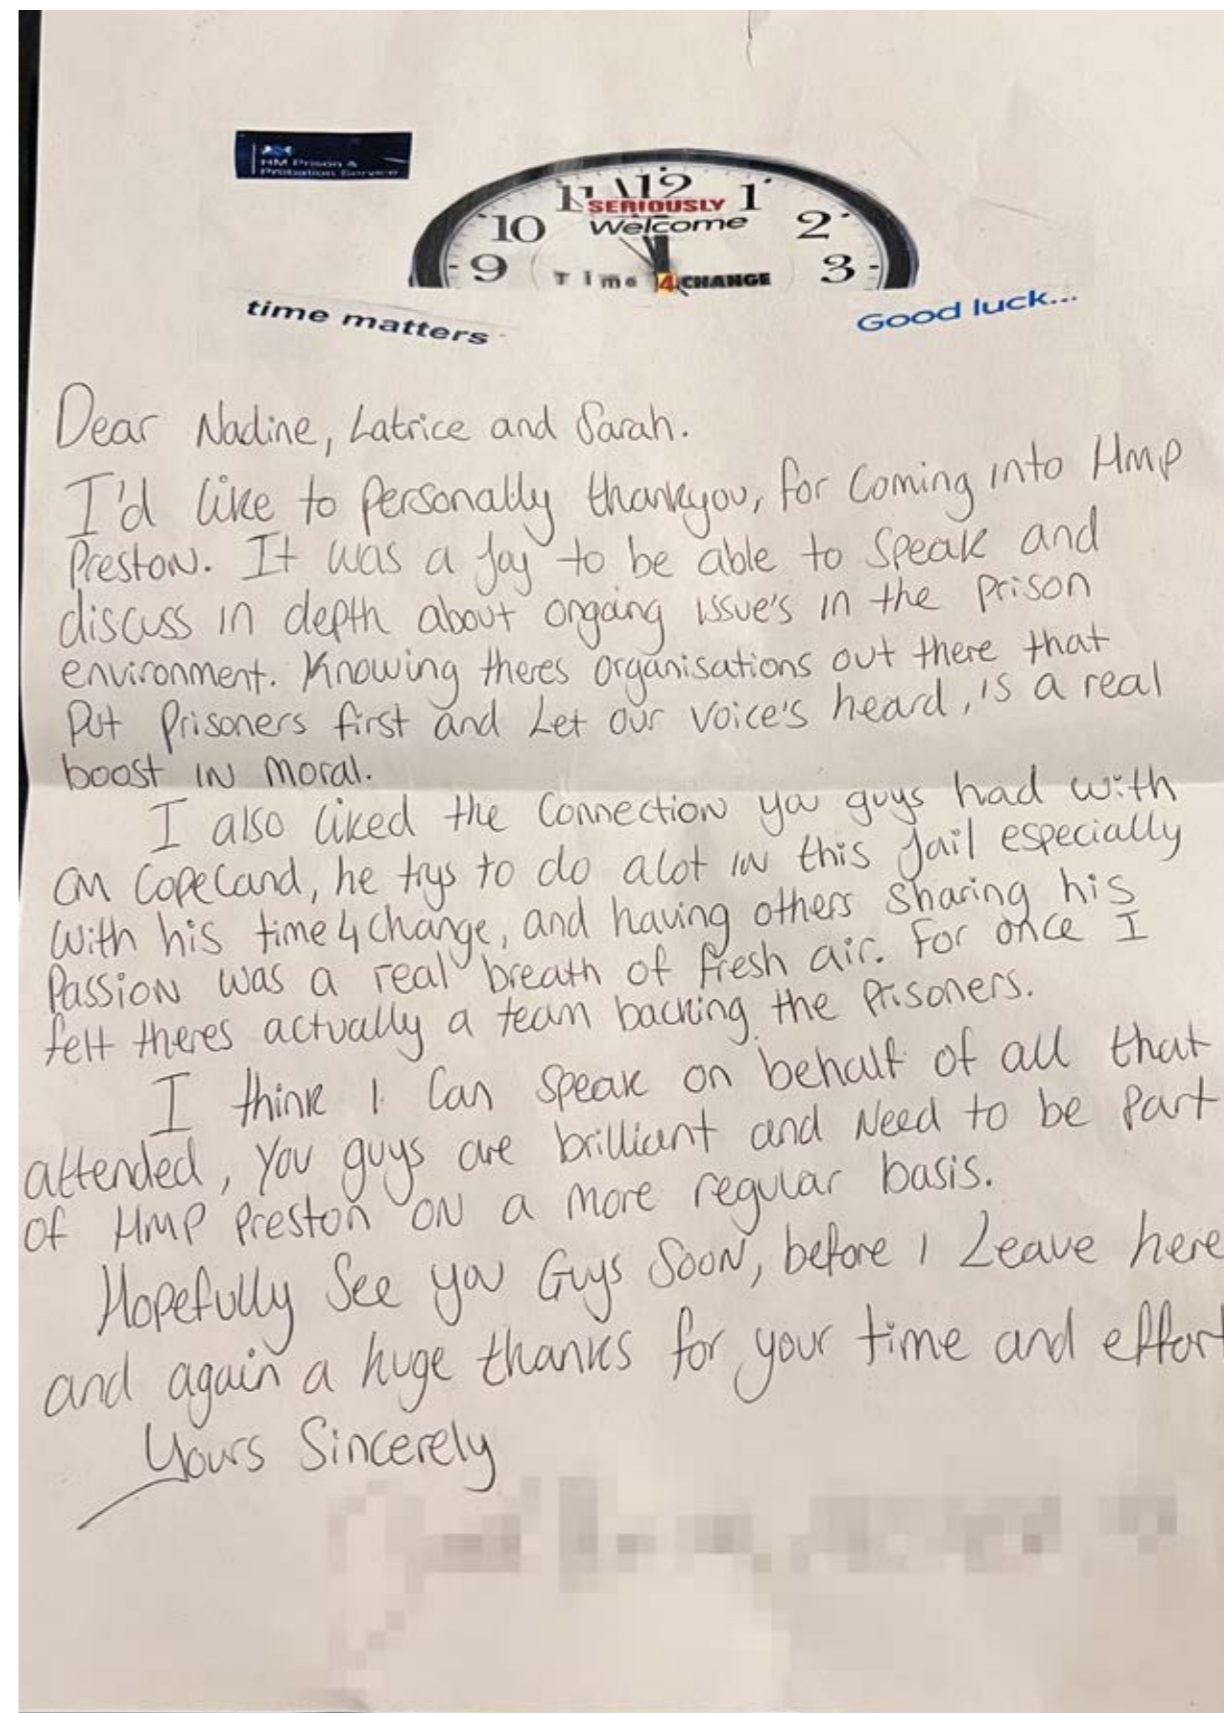 HM Prison &
Probation Service
11 12 1
SERIOUSLY
10 Welcome 2
9 Time 4 CHANGE 3
time matters
Good luck...
Dear Nadine, Latrice and Sarah.
I'd like to personally thankyou, for coming into HMP
Preston. It was a joy to be able to speak and
discuss in depth about ongoing issue's in the prison
environment. Knowing theres organisations out there that
put prisoners first and Let our voice's heard, is a real
boost in moral.
I also liked the connection you guys had with
CM Copeland, he trys to do alot in this jail especially
with his time 4 change, and having others sharing his
passion was a real breath of fresh air. For once I
felt theres actually a team backing the prisoners.
I think I can speak on behalf of all that
attended, you guys are brilliant and need to be part
of HMP Preston on a more regular basis.
Hopefully see you Guys Soon, before I Leave here
and again a huge thanks for your time and effort
Yours Sincerely